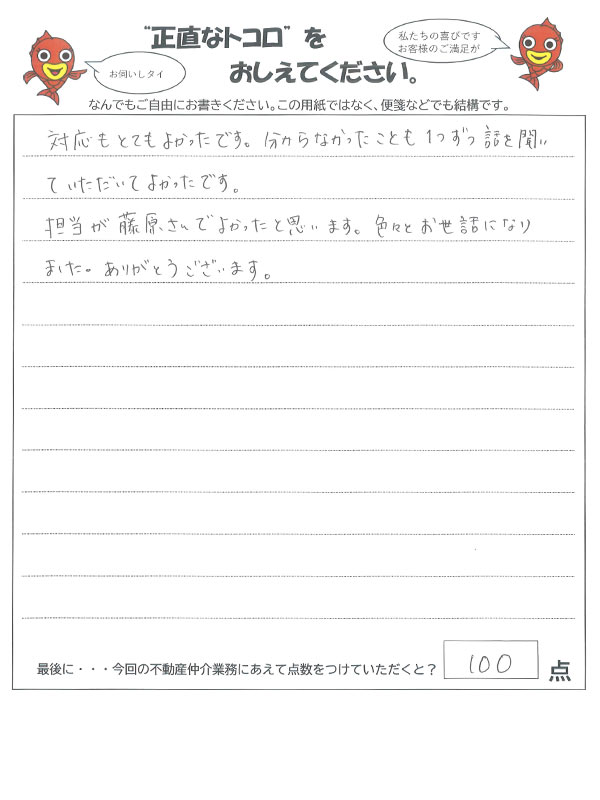 “正直なトコロ”を
おしえてください。
お伺いしタイ
私たちの喜びです
お客様のご満足が
なんでもご自由にお書きください。この用紙ではなく、便箋などでも結構です。
対応もとてもよかったです。分からなかったことも1つずつ話を聞い
ていただいてよかったです。
担当が藤原さんでよかったと思います。色々とお世話になり
ました。ありがとうございます。
最後に・・・今回の不動産仲介業務にあえて点数をつけていただくと？ 100 点